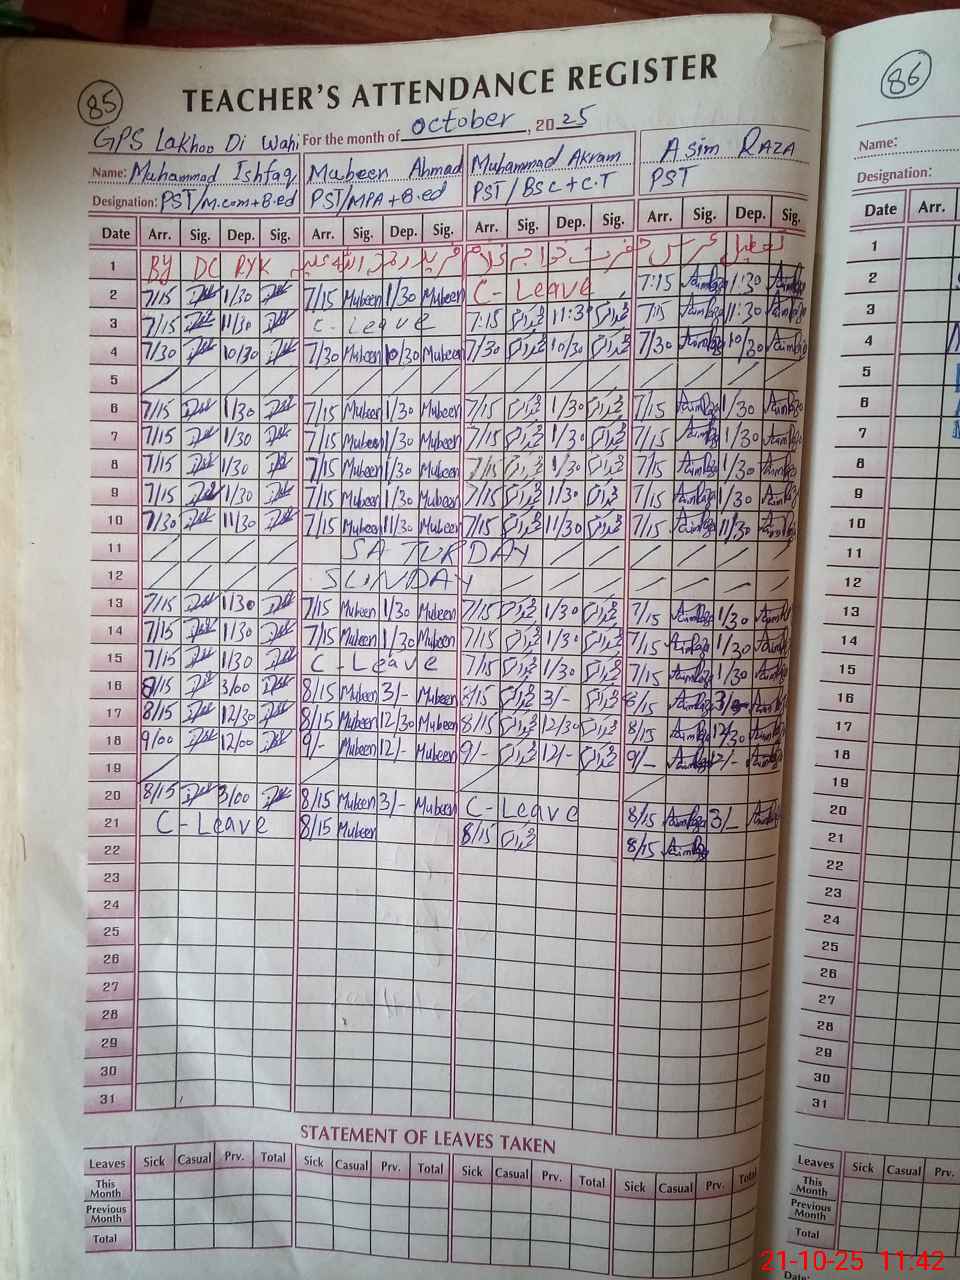 85
TEACHER'S ATTENDANCE REGISTER
GPS Lakhoo Di Wahi For the month of October, 2025
Name: Muhammad Ishfaq Mubeen Ahmad Muhammad Akram Asim RAZA
Designation: PST/M.com+B.ed PST/MPA+B.ed PST/BSC+C.T PST
Date Arr. Sig. Dep. Sig. Arr. Sig. Dep. Sig. Arr. Sig. Dep. Sig. Arr. Sig. Dep. Sig.
1 By DC RYK
2 7/15 1/30 7/15 Mubeen 1/30 Mubeen C-Leave 7:15 1:30
3 7/15 11/30 C-Leave 7:15 11:30 7:15 11:30
4 7/30 10/30 7/30 Mubeen 10/30 Mubeen 7/30 10/30 7/30 10/30
5
6 7/15 1/30 7/15 Mubeen 1/30 Mubeen 7/15 1/30 7/15 1/30
7 7/15 1/30 7/15 Mubeen 1/30 Mubeen 7/15 1/30 7/15 1/30
8 7/15 1/30 7/15 Mubeen 1/30 Mubeen 7/15 1/30 7/15 1/30
9 7/15 1/30 7/15 Mubeen 1/30 Mubeen 7/15 1/30 7/15 1/30
10 7/30 11/30 7/15 Mubeen 11/30 Mubeen 7/15 11/30 7/15 11/30
11 SATURDAY
12 SUNDAY
13 7/15 1/30 7/15 Mubeen 1/30 Mubeen 7/15 1/30 7/15 1/30
14 7/15 1/30 7/15 Mubeen 1/30 Mubeen 7/15 1/30 7/15 1/30
15 7/15 1/30 C-Leave 7/15 1/30 7/15 1/30
16 8/15 3/00 8/15 Mubeen 3/- Mubeen 8/15 3/- 8/15
17 8/15 12/30 8/15 Mubeen 12/30 Mubeen 8/15 12/30 8/15 12/30
18 9/00 12/00 9/- Mubeen 12/- Mubeen 9/- 12/- 9/- 12/-
19
20 8/15 3/00 8/15 Mubeen 3/- Mubeen C-Leave 8/15 3/-
21 C-Leave 8/15 Mubeen 8/15 8/15
22
23
24
25
26
27
28
29
30
31
STATEMENT OF LEAVES TAKEN
Leaves Sick Casual Prv. Total Sick Casual Prv. Total Sick Casual Prv. Total Sick Casual Prv. Total
This Month
Previous Month
Total
86
Name:
Designation:
Date Arr.
1
2
3
4
5
6
7
8
9
10
11
12
13
14
15
16
17
18
19
20
21
22
23
24
25
26
27
28
29
30
31
Leaves Sick Casual Prv.
This Month
Previous Month
Total
Date:
21-10-25 11:42